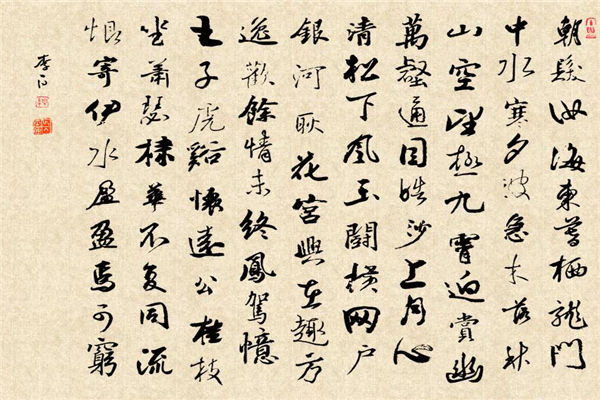 朝髮汝海東暮栖龍門
中水寒夕波急木落秋
山空望極九霄迥賞幽
萬壑通目皓沙上月心
清松下風玉鬪横网户
銀河耿花宮興在趣方
逸歡餘情未終鳳駕憶
王子虎谿懷遠公桂枝
坐蕭瑟棣華不复同流
恨寄伊水盈盈焉可窮
李白